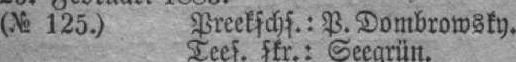 (№ 125.) Preekſchſ.: P. Dombrowsky.
Teeſ. ſkr.: Seegrün.